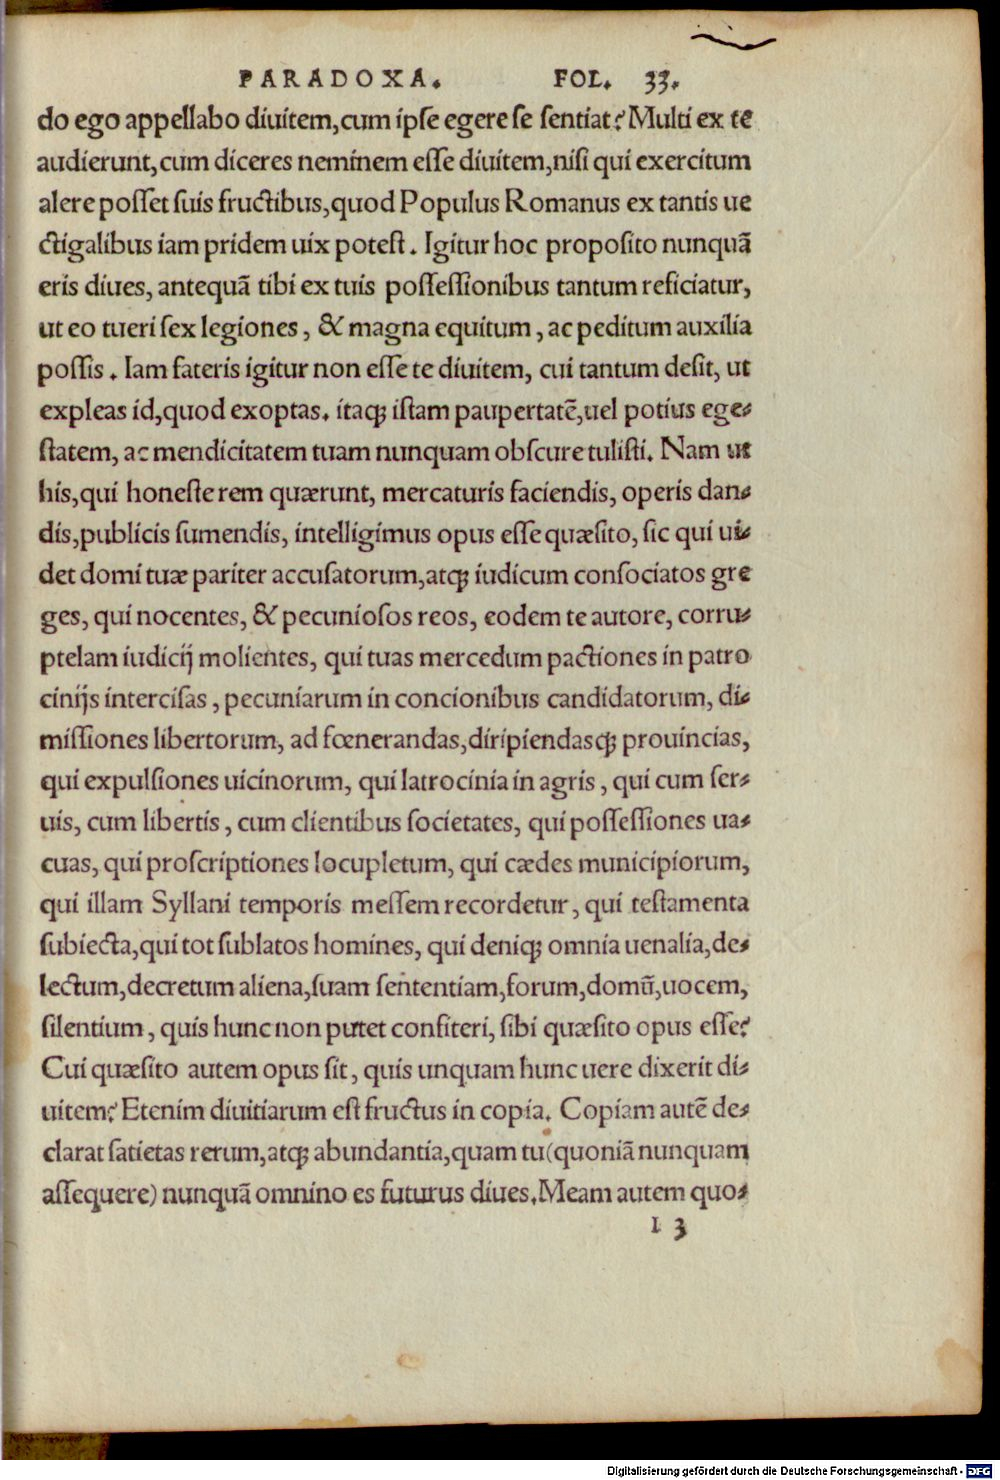 PARADOXA. FOL. 33.
do ego appellabo diuitem,cum ipse egere se sentiat? Multi ex te
audierunt,cum diceres neminem esse diuitem,nisi qui exercitum
alere posset suis fructibus,quod Populus Romanus ex tantis ue
ctigalibus iam pridem uix potest. Igitur hoc proposito nunquã
eris diues, antequã tibi ex tuis possessionibus tantum reficiatur,
ut eo tueri sex legiones, & magna equitum, ac peditum auxilia
possis. Iam fateris igitur non esse te diuitem, cui tantum desit, ut
expleas id,quod exoptas. itaqꝫ istam paupertatẽ,uel potius ege-
statem, ac mendicitatem tuam nunquam obscure tulisti. Nam ut
his,qui honeste rem quærunt, mercaturis faciendis, operis dan-
dis,publicis sumendis, intelligimus opus esse quæsito, sic qui ui-
det domi tuæ pariter accusatorum,atqꝫ iudicum consociatos gre
ges, qui nocentes, & pecuniosos reos, eodem te autore, corru-
ptelam iudicij molientes, qui tuas mercedum pactiones in patro
cinijs intercisas, pecuniarum in concionibus candidatorum, di-
missiones libertorum, ad fœnerandas,diripiendasqꝫ prouincias,
qui expulsiones uicinorum, qui latrocinia in agris, qui cum ser-
uis, cum libertis, cum clientibus societates, qui possessiones ua-
cuas, qui proscriptiones locupletum, qui cædes municipiorum,
qui illam Syllani temporis messem recordetur, qui testamenta
subiecta,qui tot sublatos homines, qui deniqꝫ omnia uenalia,de-
lectum,decretum aliena,suam sententiam,forum,domũ,uocem,
silentium, quis hunc non putet confiteri, sibi quæsito opus esse?
Cui quæsito autem opus sit, quis unquam hunc uere dixerit di-
uitem? Etenim diuitiarum est fructus in copia. Copiam autẽ de-
clarat satietas rerum,atqꝫ abundantia,quam tu(quoniã nunquam
assequere) nunquã omnino es futurus diues.Meam autem quo-
I 3
Digitalisierung gefördert durch die Deutsche Forschungsgemeinschaft - DFG